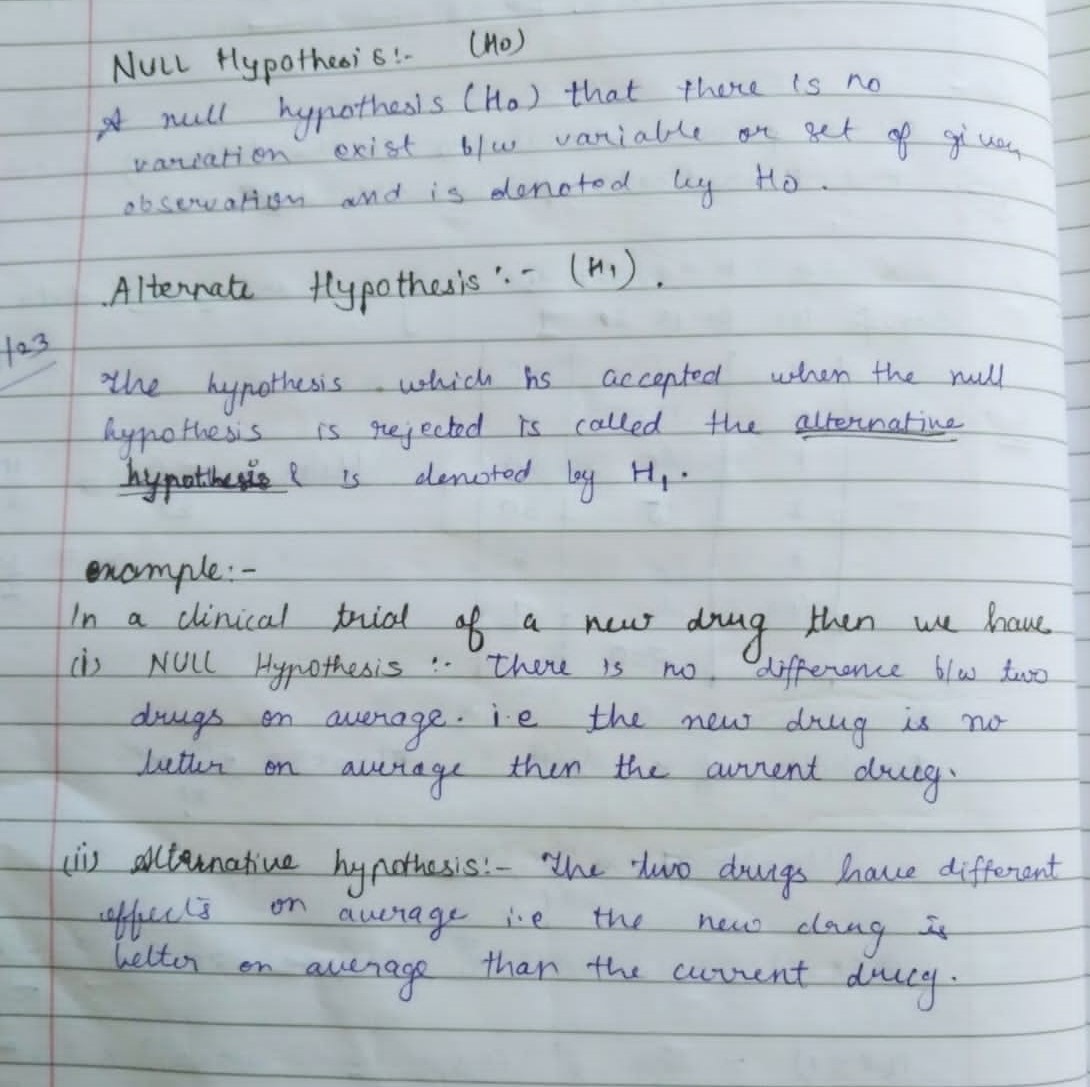 NULL Hypothesis:- (H0)
A null hypothesis (Ho) that there is no
variation exist b/w variable or set of given
observation and is denoted by Ho.
Alternate Hypothesis :- (H1).
The hypothesis which is accepted when the null
hypothesis is rejected is called the alternative
hypothesis & is denoted by H1.
example:-
In a clinical trial of a new drug then we have
(i) NULL Hypothesis :- There is no difference b/w two
drugs on average. i.e the new drug is no
better on average then the current drug.
(ii) Alternative hypothesis:- The two drugs have different
effects on average i.e the new drug is
better on average than the current drug.